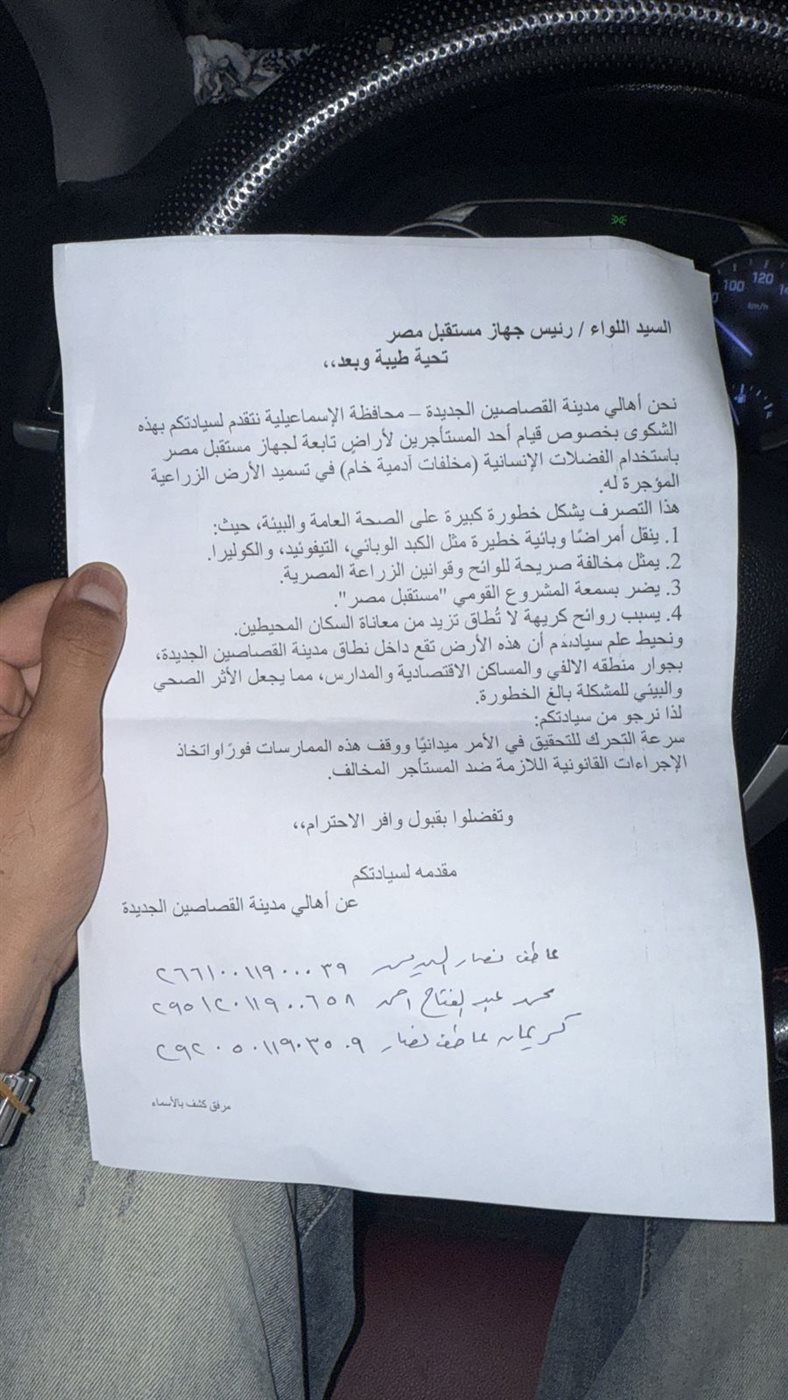 السيد اللواء / رئيس جهاز مستقبل مصر
تحية طيبة وبعد،،
نحن أهالي مدينة القصاصين الجديدة – محافظة الإسماعيلية نتقدم لسيادتكم بهذه
الشكوى بخصوص قيام أحد المستأجرين لأراضٍ تابعة لجهاز مستقبل مصر
باستخدام الفضلات الإنسانية (مخلفات آدمية خام) في تسميد الأرض الزراعية
المؤجرة له.
هذا التصرف يشكل خطورة كبيرة على الصحة العامة والبيئة، حيث:
1. ينقل أمراضًا وبائية خطيرة مثل الكبد الوبائي، التيفوئيد، والكوليرا.
2. يمثل مخالفة صريحة للوائح وقوانين الزراعة المصرية.
3. يضر بسمعة المشروع القومي "مستقبل مصر".
4. يسبب روائح كريهة لا تُطاق تزيد من معاناة السكان المحيطين.
ونحيط علم سيادتكم أن هذه الأرض تقع داخل نطاق مدينة القصاصين الجديدة،
بجوار منطقه الالفي والمساكن الاقتصادية والمدارس، مما يجعل الأثر الصحي
والبيئي للمشكلة بالغ الخطورة.
لذا نرجو من سيادتكم:
سرعة التحرك للتحقيق في الأمر ميدانيًا ووقف هذه الممارسات فورًاواتخاذ
الإجراءات القانونية اللازمة ضد المستأجر المخالف.
وتفضلوا بقبول وافر الاحترام،،
مقدمه لسيادتكم
عن أهالي مدينة القصاصين الجديدة
عاطف نصار ٢٦٦١٠٠١١٩٠٠٠٣٩
محمد عبد الفتاح احمد ٢٩٥١٢٠١١٩٠٠٦٥٨
كريمان عاطف نصار ٢٩٢٠٥٠١١٩٠٣٥٠٩
مرفق كشف بالأسماء
100
120
km/h